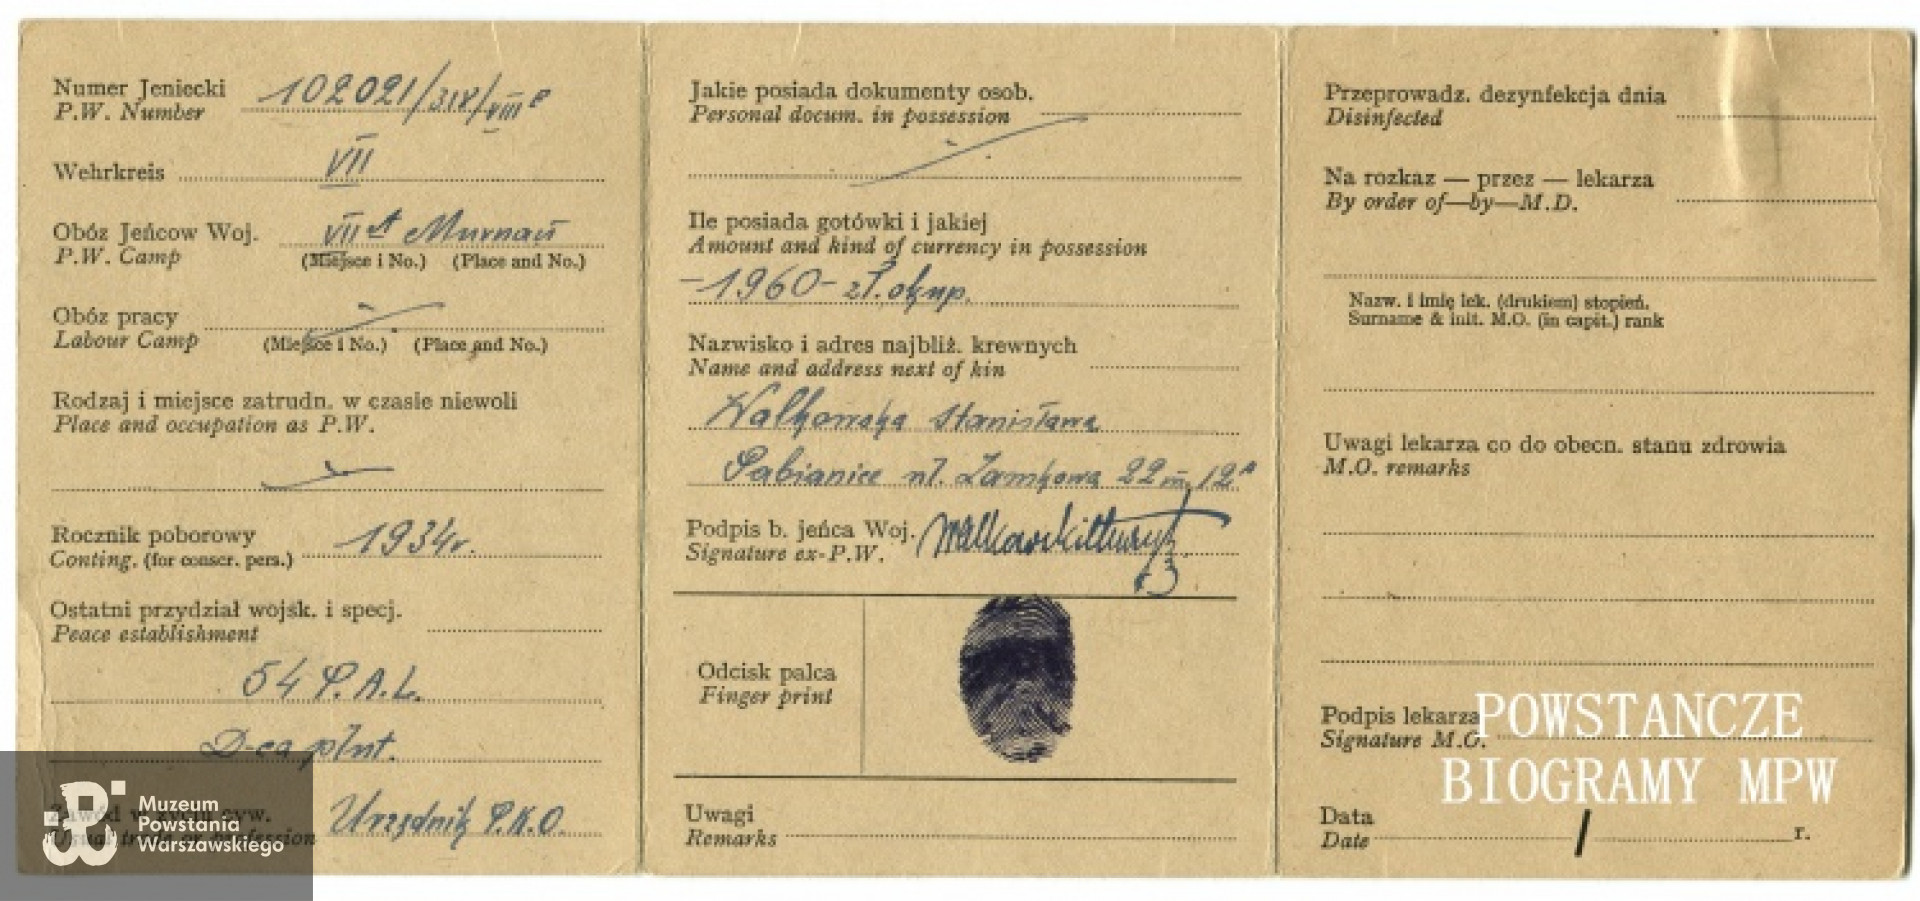 Numer Jeniecki 102021/XIX/VIII e
P.W. Number
Wehrkreis VII
Obóz Jeńcow Woj. VII A Murnau
P.W. Camp (Miejsce i No.) (Place and No.)
Obóz pracy
Labour Camp (Miejsce i No.) (Place and No.)
Rodzaj i miejsce zatrudn. w czasie niewoli
Place and occupation as P.W.
Rocznik poborowy 1934r.
Conting. (for conscr. pers.)
Ostatni przydział wojsk. i specj.
Peace establishment
54 P.A.L.
D-ca plut.
Zawód w życiu cyw. Urzędnik P.K.O.
Usual trade or profession
Muzeum
Powstania
Warszawskiego
Jakie posiada dokumenty osob.
Personal docum. in possession
Ile posiada gotówki i jakiej
Amount and kind of currency in possession
-1960- zł. okup.
Nazwisko i adres najbliż. krewnych
Name and address next of kin
Walkowska Stanisława
Pabianice ul. Zamkowa 22 m. 12a
Podpis b. jeńca Woj.
Signature ex-P.W.
Odcisk palca
Finger print
Uwagi
Remarks
Przeprowadz. dezynfekcja dnia
Disinfected
Na rozkaz — przez — lekarza
By order of—by—M.D.
Nazw. i imię lek. (drukiem) stopień.
Surname & init. M.O. (in capit.) rank
Uwagi lekarza co do obecn. stanu zdrowia
M.O. remarks
Podpis lekarza
Signature M.O.
POWSTANCZE
BIOGRAMY MPW
Data
Date / r.